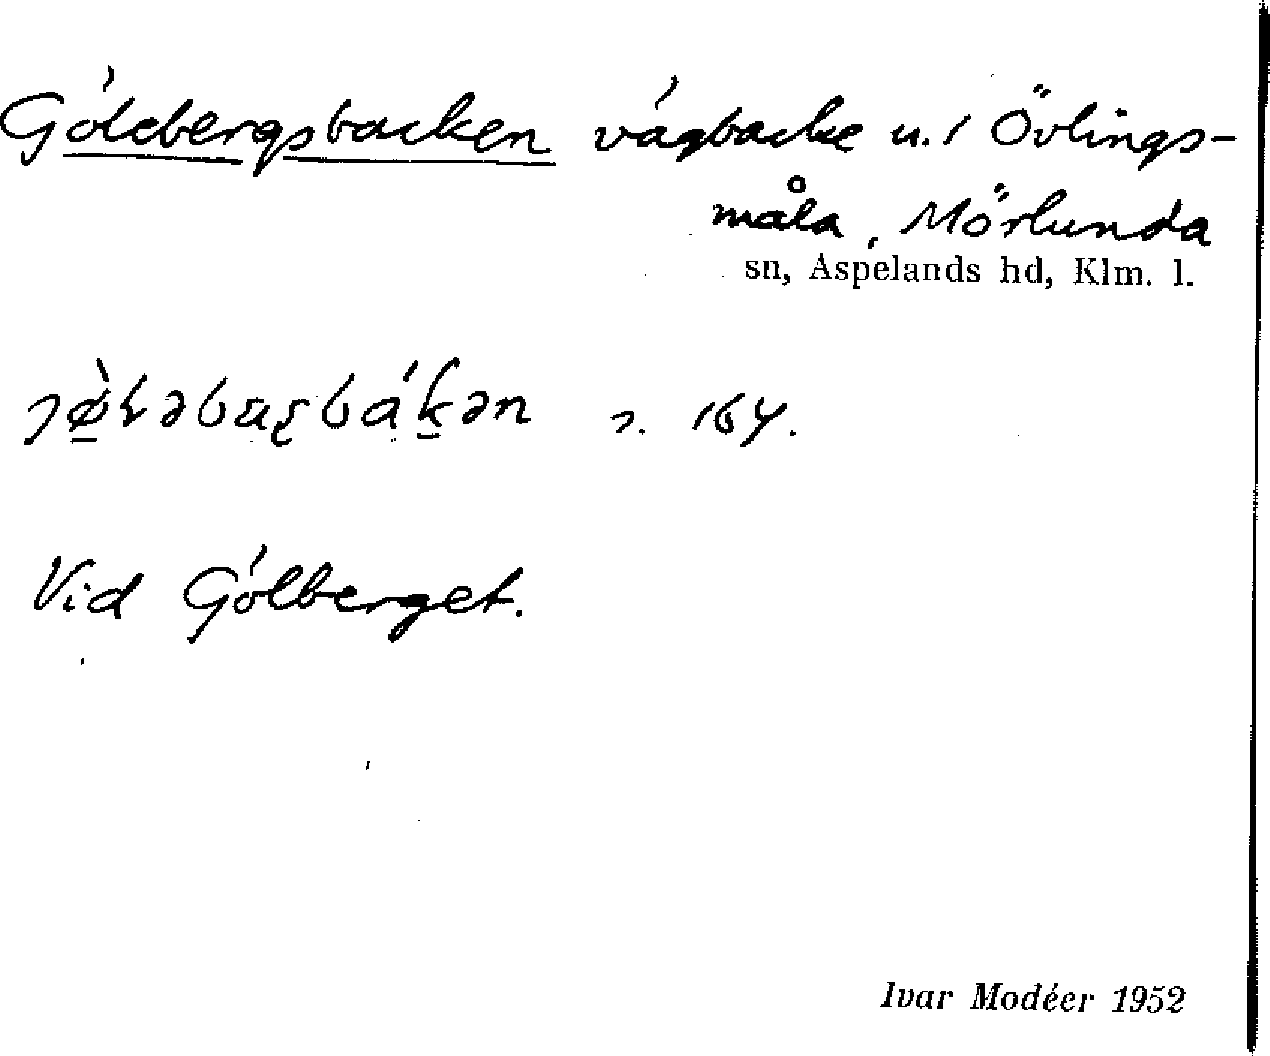 Gólebergsbacken vágbacke u. 1 Övlings-
måla, Mörlunda
sn, Aspelands hd, Klm. l.
164.
Vid Gólberget.
Ivar Modéer 1952